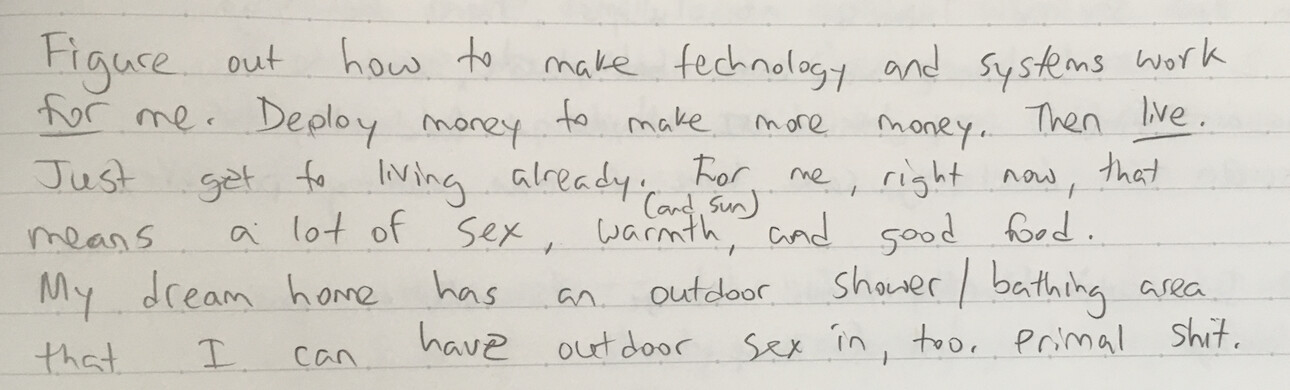 Figure out how to make technology and systems work
for me. Deploy money to make more money. Then live.
Just get to living already. For me, right now, that
(and sun)
means a lot of sex, warmth, and good food.
My dream home has an outdoor shower/bathing area
that I can have outdoor sex in, too. Primal shit.